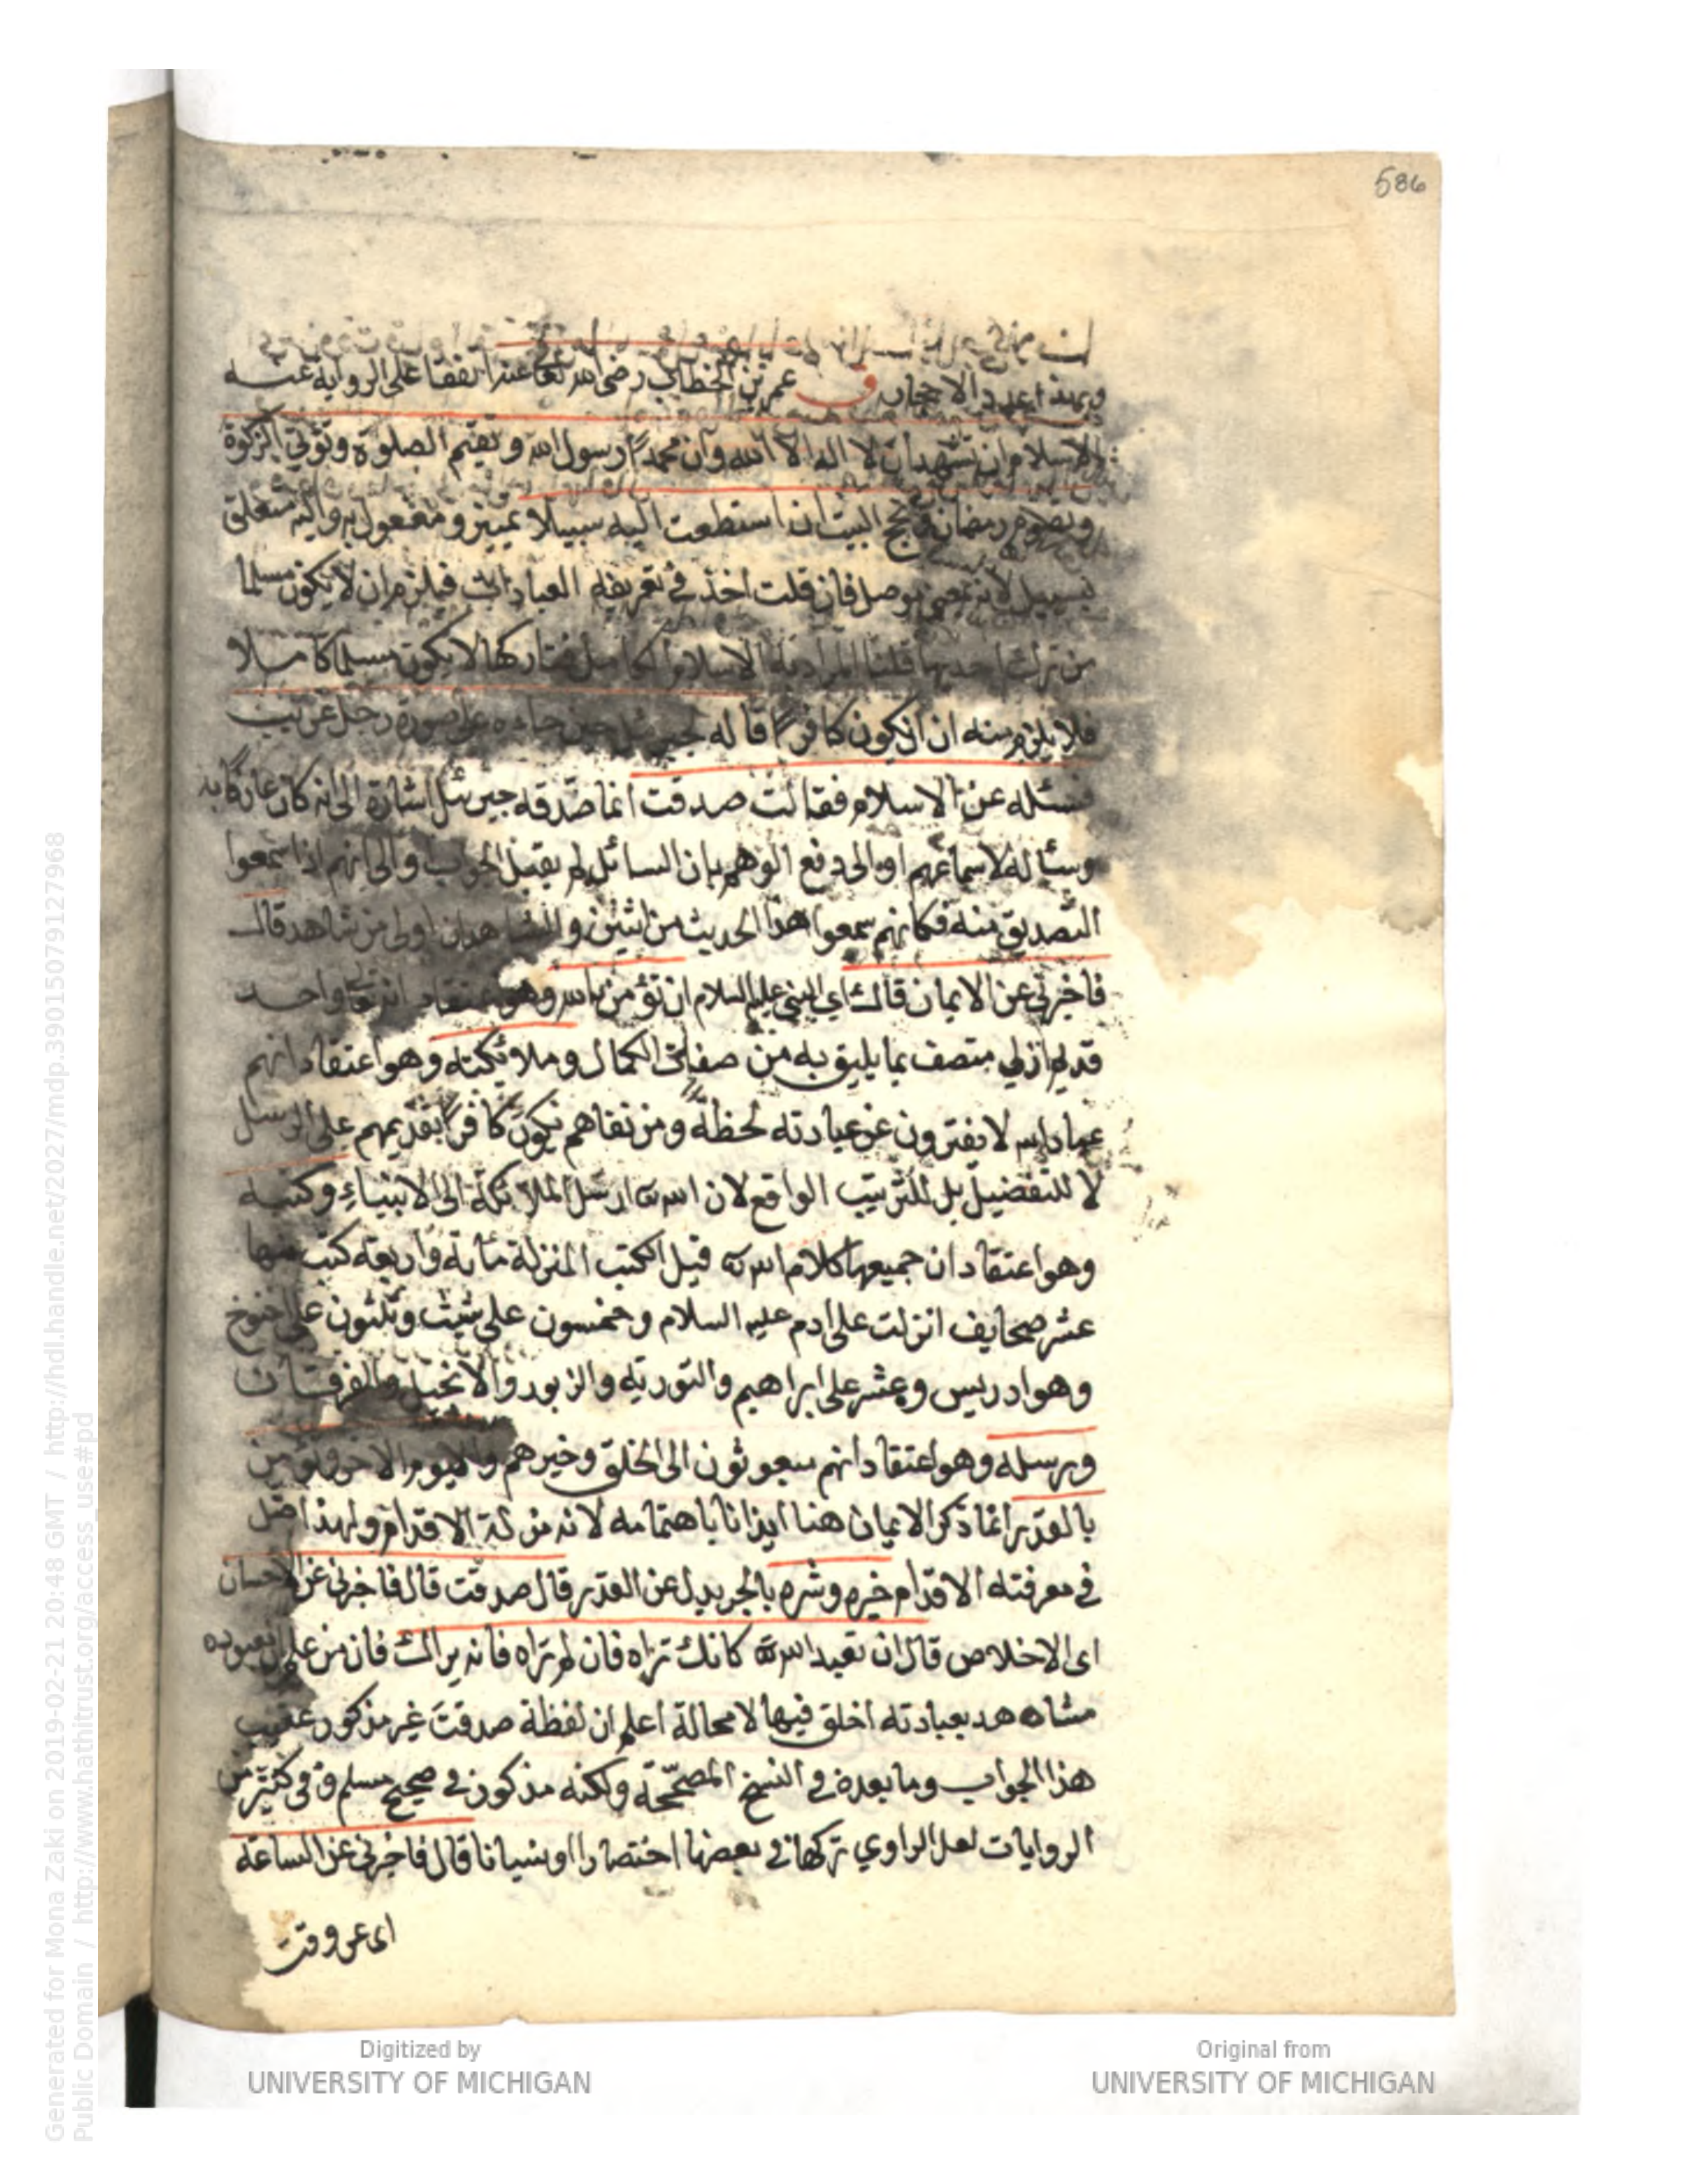 586
وبهذا عدد الاحجار ق عمر بن الخطاب رضى الله تعا عنه اتفقا على الرواية عنه
الاسلام ان تشهد ان لا اله الا الله وان محمدًا رسول الله وتقيم الصلوة وتؤتي الزكوة
وتصوم رمضان وتحج البيت ان استطعت اليه سبيلا تمييز ومفعول به واليه متعلق
بسبيل لانه بمعنى موصل فان قلت اخذ في تعريفه العبادات فيلزم ان لا يكون مسلما
من ترك احديها قلنا المراد به الاسلام الكامل فتاركها لا يكون مسلما كاملا
فلا يلزم منه ان يكون كافرًا قاله لجبرئيل حين جاءه على صورة رجل غريب
فسئله عن الاسلام فقالت صدقت انما صدقه جبرئيل اشارة الى انه كان عارفا به
وسئاله لاسماعهم او الى دفع الوهم بان السائل لم يقبل الجواب والى انهم اذا سمعوا
التصديق منه فكانهم سمعوا هذا الحديث من اثنين والشاهدان اولى من شاهد قال
فاخبرني عن الايمان قال اى النبي عليه السلام ان تؤمن بالله وهو اعتقاد انه تعا واحد
قديم ازلي متصف بما يليق به من صفات الكمال وملائكته وهو اعتقاد انهم
عباد الله لا يفترون عن عبادته لحظة ومن نفاهم يكون كافرًا تقديمهم على الرسل
لا للتفضيل بل للترتيب الواقع لان الله تع ارسل الملائكة الى الانبياء وكتبه
وهو اعتقاد ان جميعها كلام الله تع قيل الكتب المنزلة مائة واربعة كتب منها
عشر صحايف انزلت على ادم عليه السلام وخمسون على شيث وثلثون على اخنوخ
وهو ادريس وعشر على ابراهيم والتورية والزبور والانجيل والفرقان
ورسله وهو اعتقاد انهم مبعوثون الى الخلق وخيرهم واليوم الاخر وتؤمن
بالقدر انما ذكر الايمان هنا ايذانا باهتمامه لانه مزلة الاقدام ولهذا ضل
في معرفته الاقدام خيره وشره بالجر بدل عن القدر قال صدقت قال فاخبرني عن الاحسان
اى الاخلاص قال ان تعبد الله تع كانك تراه فان لم تراه فانه يراك فان من علم ان معبوده
مشاهد بعبادته اخلق فيها لا محالة اعلم ان لفظة صدقت غير مذكور عقيب
هذا الجواب وما بعده في النسخ المصححة ولكنه مذكور في صحيح مسلم وفى كثير من
الروايات لعل الراوي تركها في بعضها اختصارا او نسيانا قال فاخبرني عن الساعة
اى عن وقت
Generated for Mona Zaki on 2019-02-21 20:48 GMT / http://hdl.handle.net/2027/mdp.39015079127968
Public Domain / http://www.hathitrust.org/access_use#pd
Digitized by
UNIVERSITY OF MICHIGAN
Original from
UNIVERSITY OF MICHIGAN